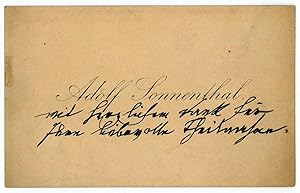 Adolf Sonnenthal
mit herzlichem Dank für
Ihre liebevolle Theilnahme.